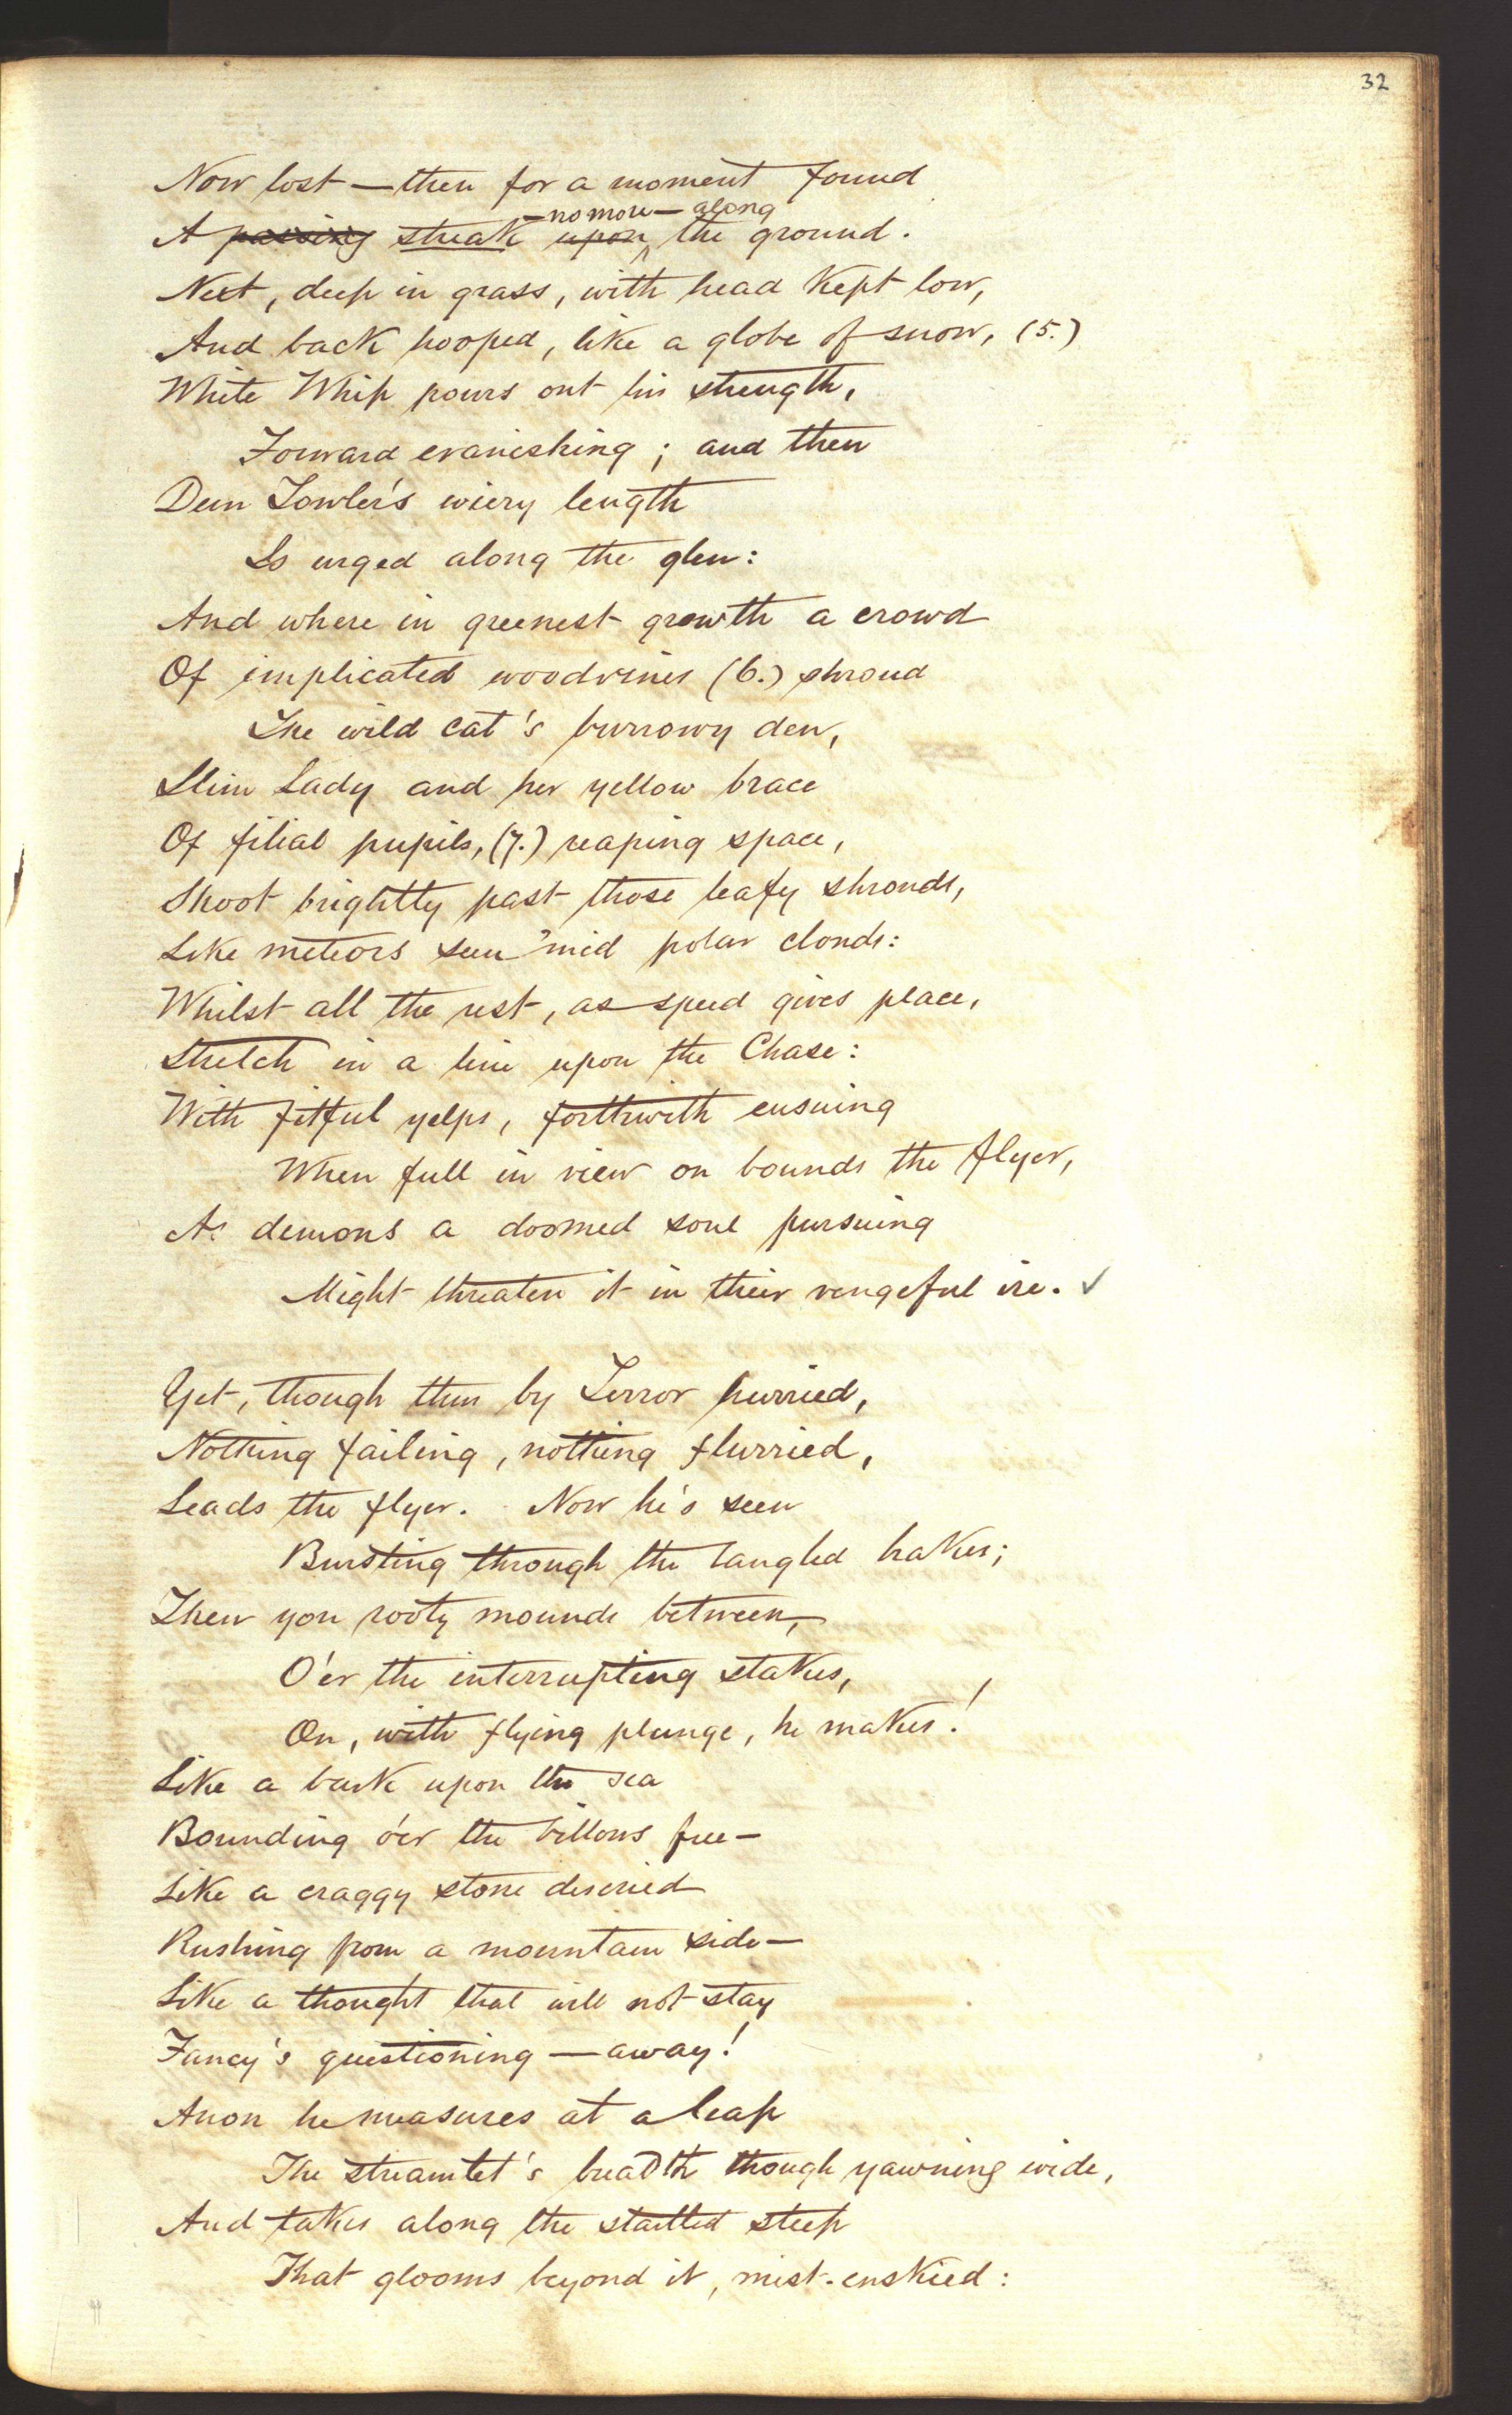 32
Now lost — then for a moment found
A passing streak upon — no more — along the ground.
Next, deep in grass, with head kept low,
And back hooped, like a globe of snow, (5.)
White Whip pours out his strength,
Forward evanishing; and then
Dun Towler's wiery length
Is urged along the glen:
And where in greenest growth a crowd
Of implicated woodvines (6.) shroud
The wild cat's burrowy den,
Slim Lady and her yellow brace
Of filial pupils, (7.) reaping space,
Shoot brightly past those leafy shrouds,
Like meteors seen 'mid polar clouds:
Whilst all the rest, as speed gives place,
Stretch in a line upon the Chase:
With fitful yelps, forthwith ensuing
When full in view on bounds the flyer,
As demons a doomed soul pursuing
Might threaten it in their vengeful ire. ✓
Yet, though thus by Terror hurried,
Nothing failing, nothing flurried,
Leads the flyer. Now he's seen
Bursting through the tangled brakes;
Then yon rooty mounds between,
O'er the interrupting stakes,
On, with flying plunge, he makes!
Like a bark upon the sea
Bounding o'er the billows free —
Like a craggy stone descried
Rushing from a mountain side —
Like a thought that will not stay
Fancy's questioning — away!
Anon he measures at a leap
The streamlet's breadth though yawning wide,
And takes along the startled steep
That glooms beyond it, mist-enskied: